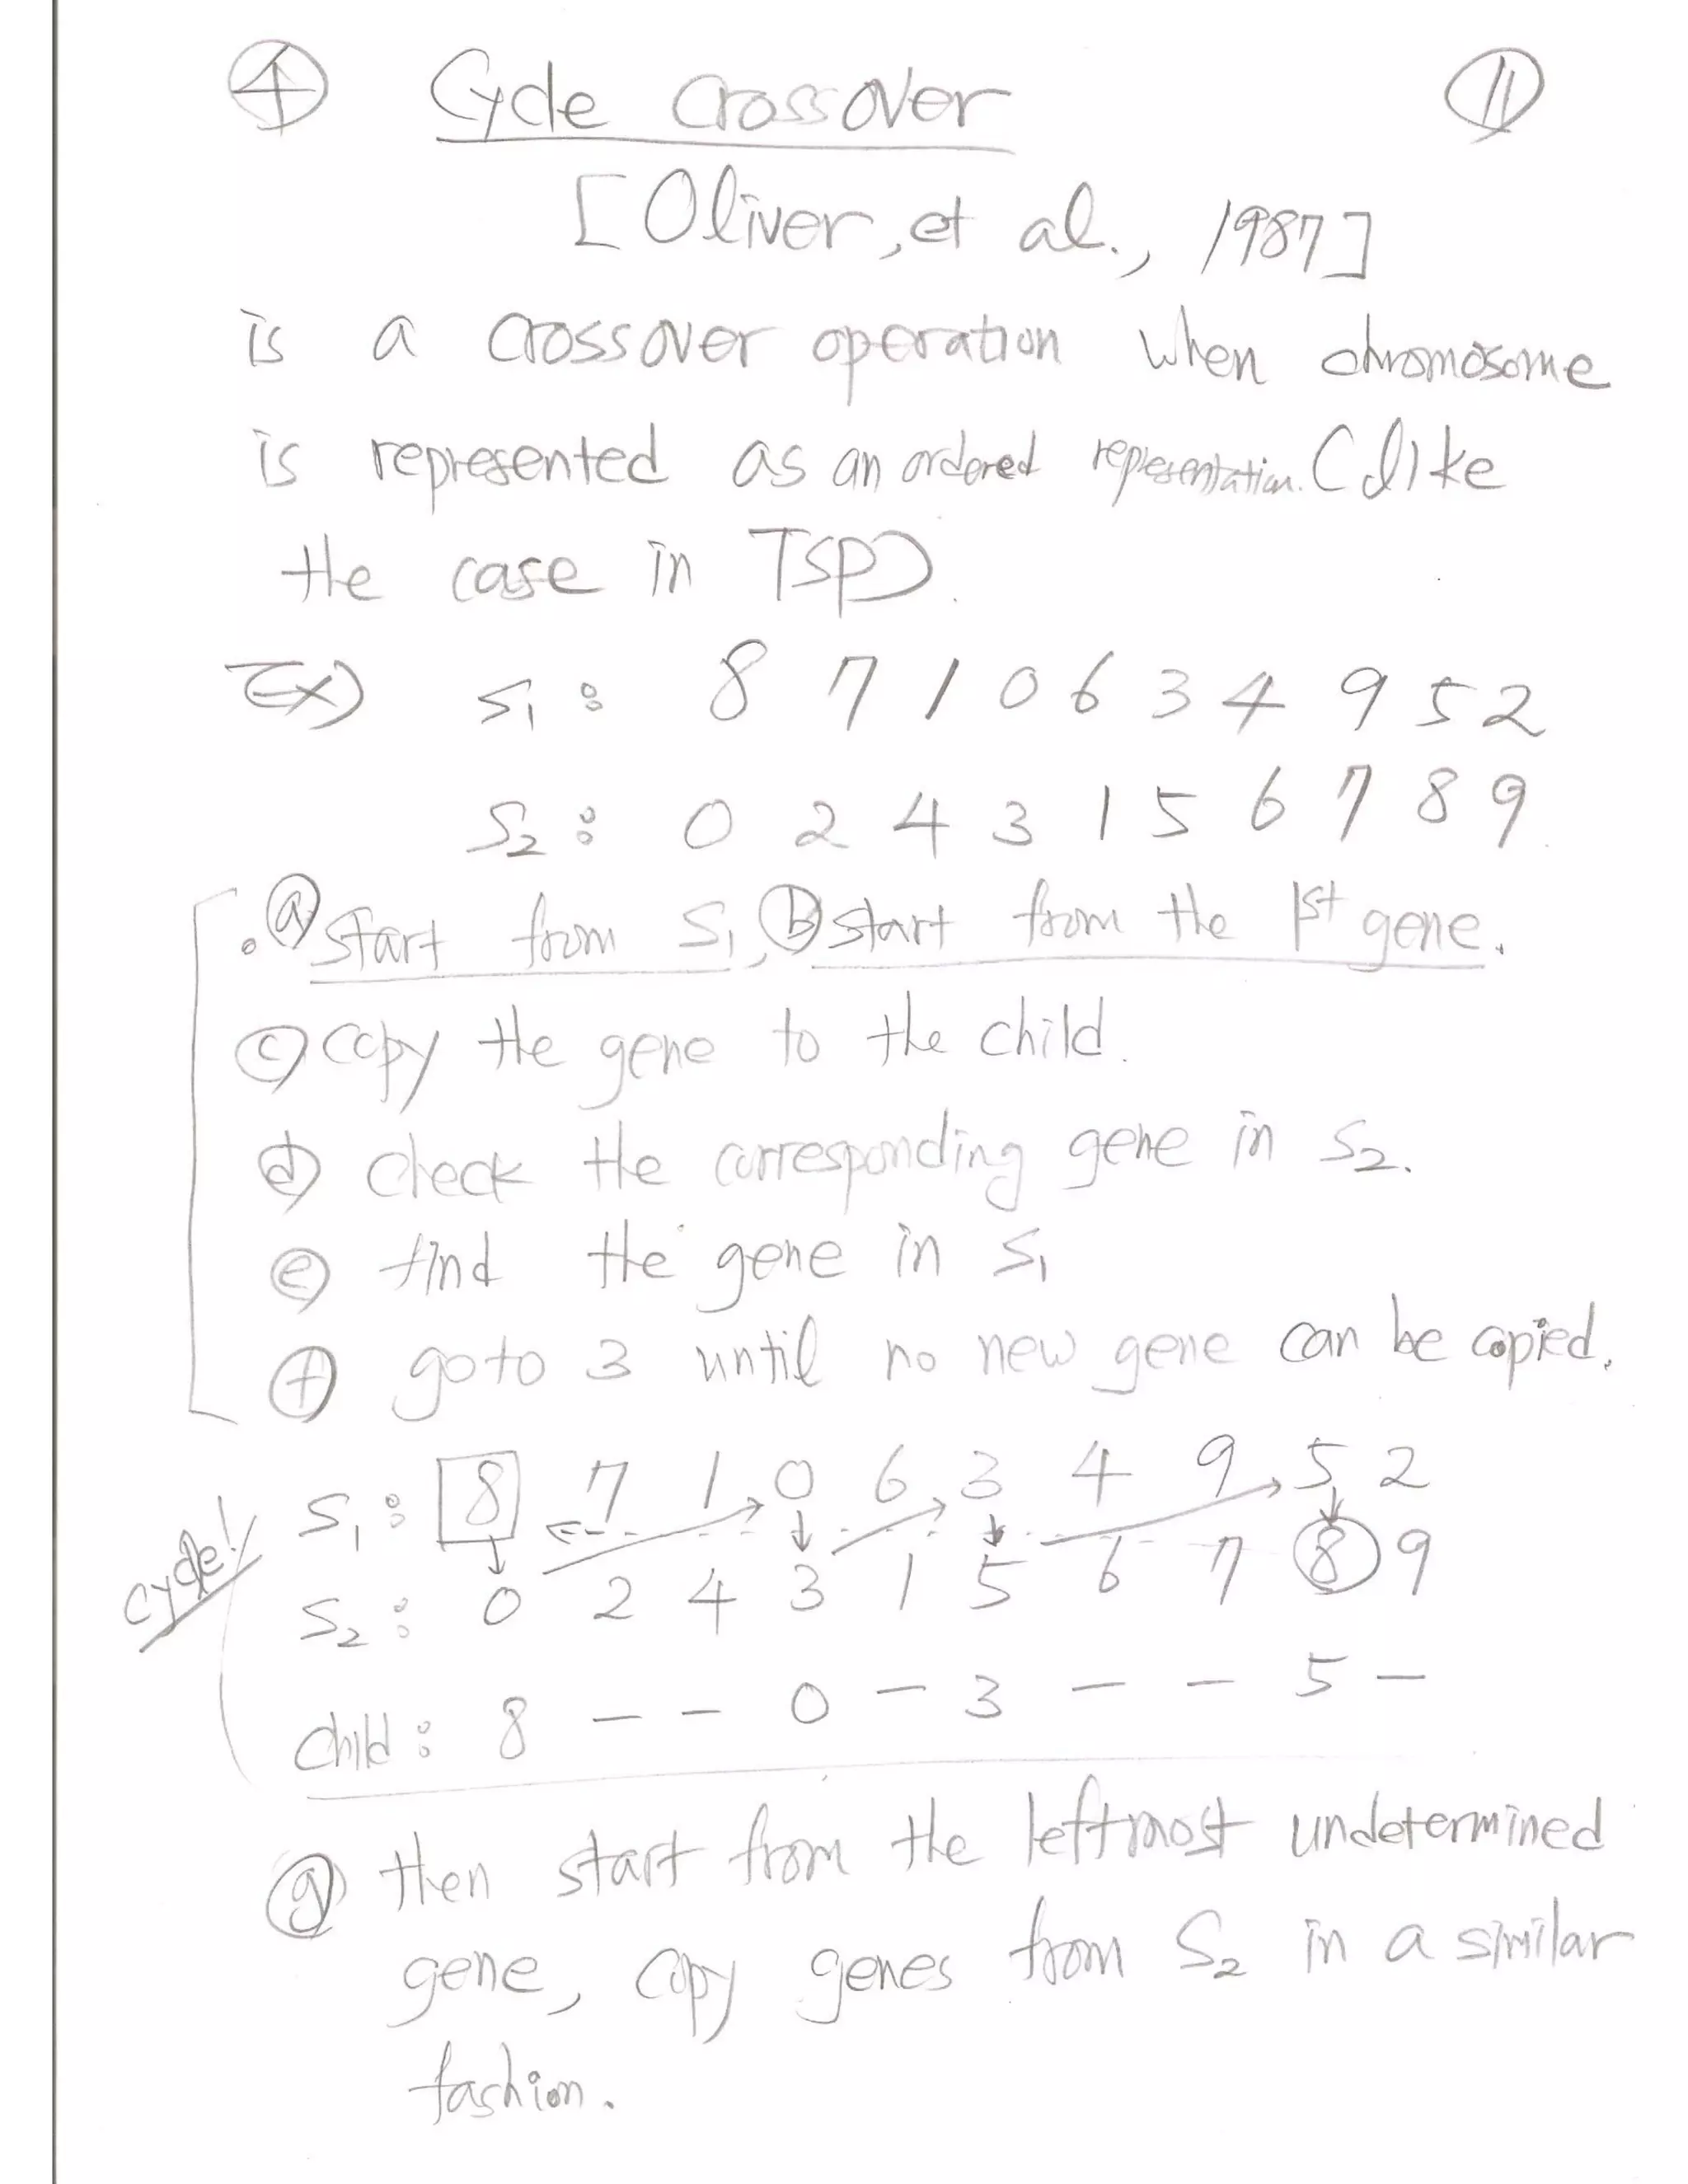 ④ Cycle Crossover ⑪
[Oliver, et al., 1987]
is a crossover operation when chromosome
is represented as an ordered representation. (like
the case in TSP).
Ex) S1 : 8 7 1 0 6 3 4 9 5 2
S2 : 0 2 4 3 1 5 6 7 8 9.
. ⓐ start from S1, ⓑ start from the 1st gene.
ⓒ copy the gene to the child.
ⓓ check the corresponding gene in S2.
ⓔ find the gene in S1
ⓕ goto 3 until no new gene can be copied.
S1 : 8 7 1 0 6 3 4 9 5 2
cycle!
S2 : 0 2 4 3 1 5 6 7 8 9
child : 8 – – 0 – 3 – – 5 –
ⓖ then start from the leftmost undetermined
gene, copy genes from S2 in a similar
fashion.